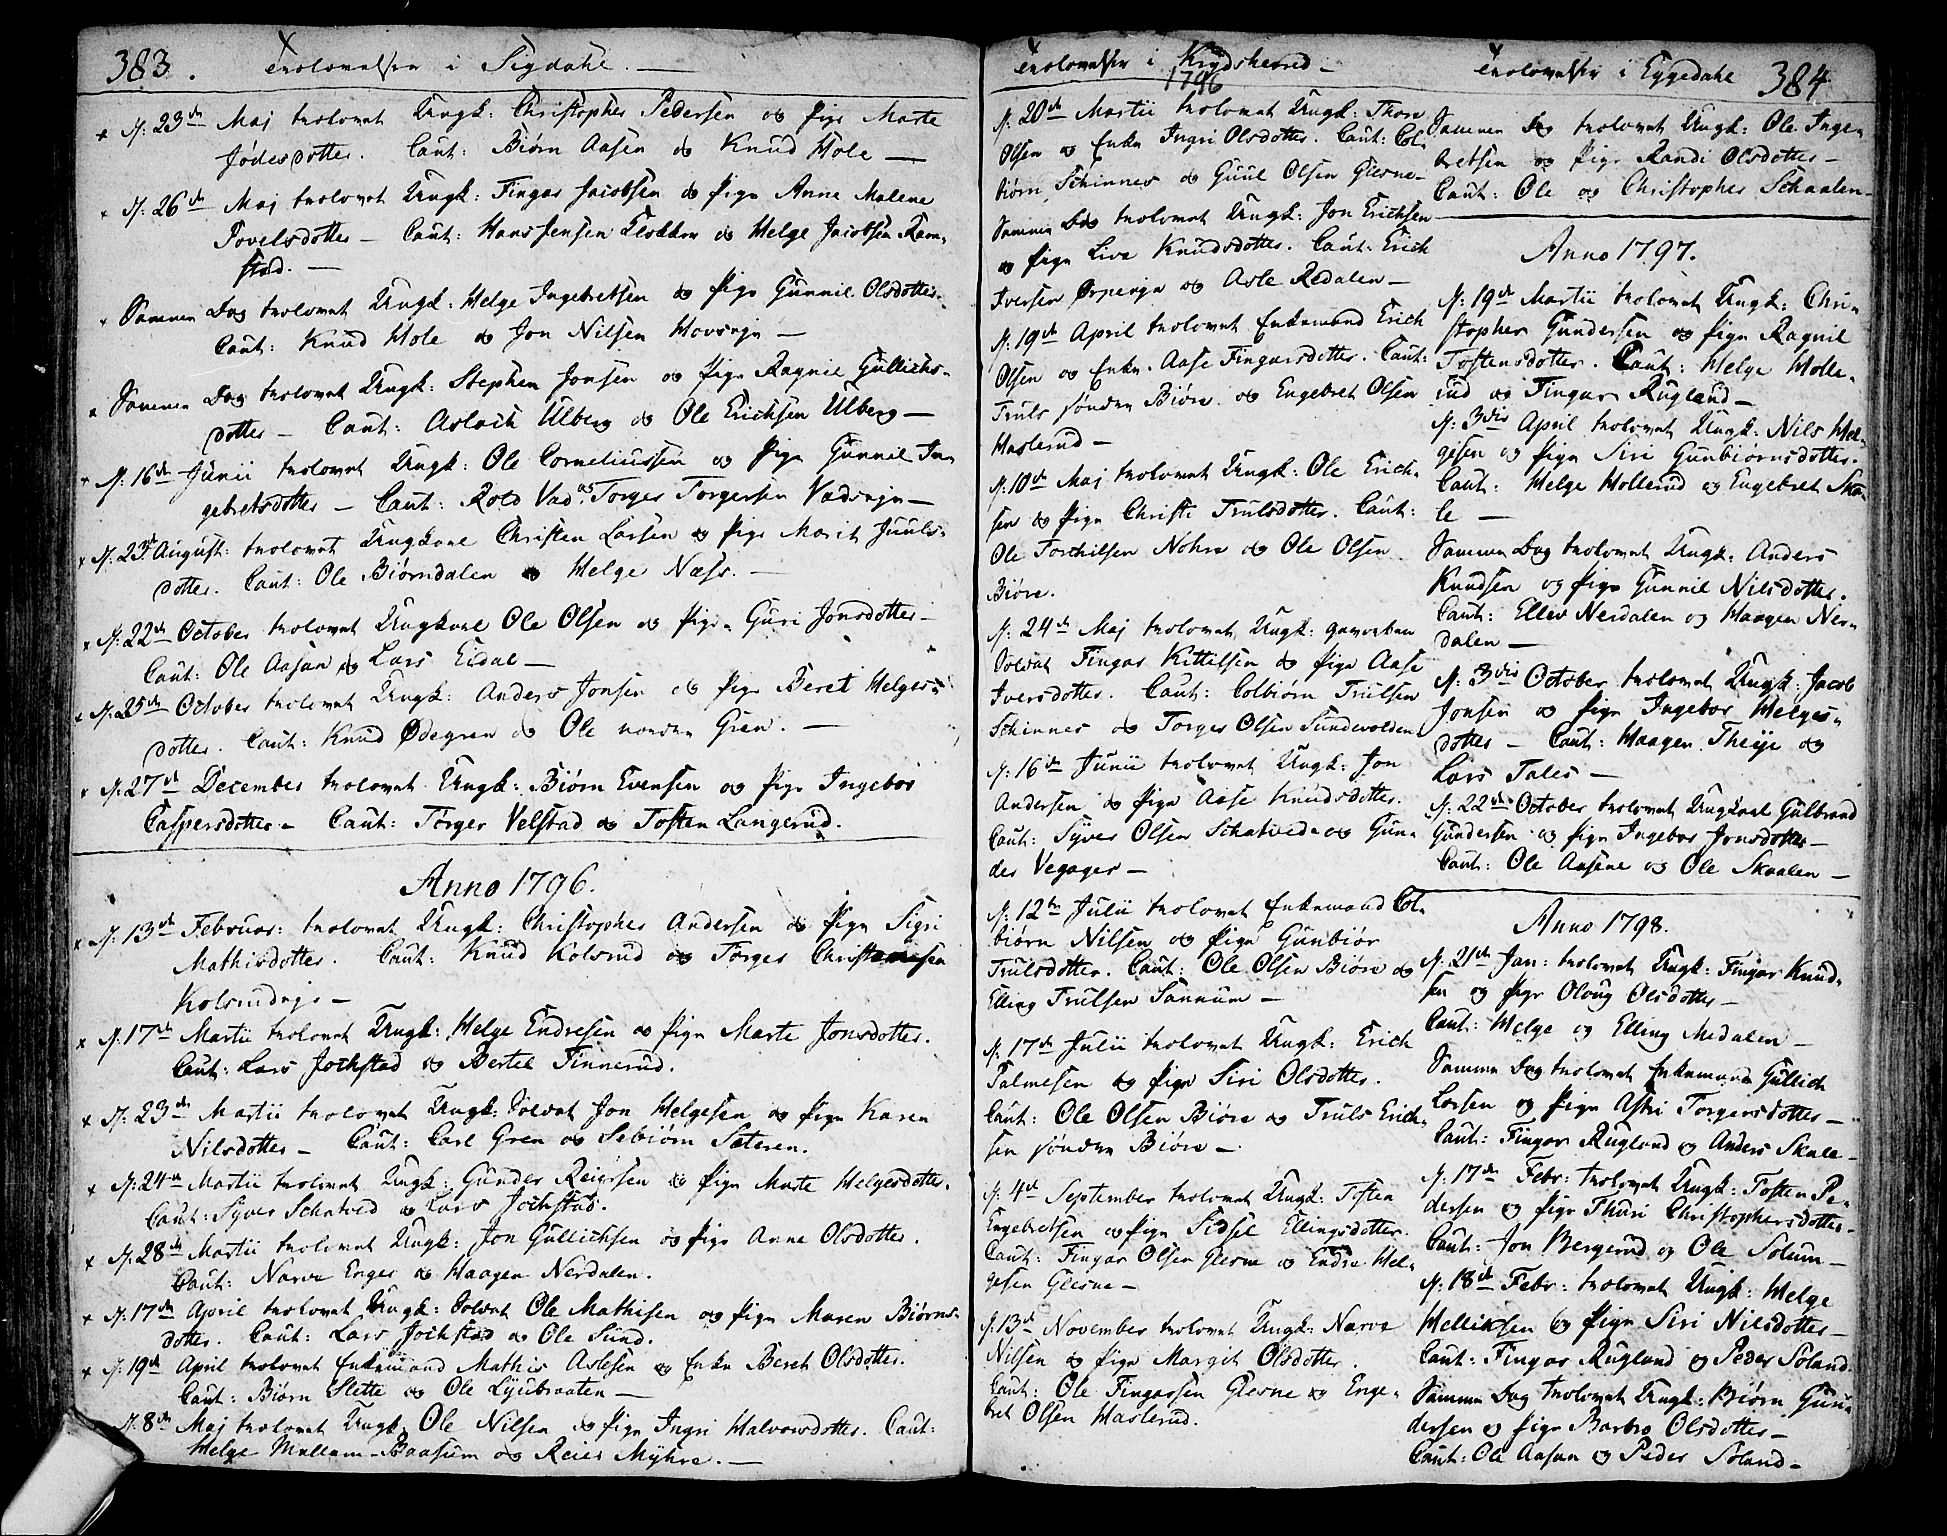 383. Trolovelser i Sigdahl. —
× d: 23de Maj trolovet Ungk: Christopher Pedersen og Pige Marte
Jødesdotter. Caut: Biørn Aasen og Knud Hole —
× d: 26de Maj trolovet Ungk: Fingar Jacobsen og Pige Anne Malene
Povelsdotter — Caut: Hans Jensen Klokker og Helge Jacobsen Ram-
stad. —
× Samme Dag trolovet Ungk: Helge Ingebretsen og Pige Gunnil Olsdotter.
Caut: Knud Hole og Jon Nilsen Hovseje —
× Samme Dag trolovet Ungk: Stephen Jonsen og Pige Ragnil Gullichs-
dotter — Caut: Aslach Ulberg og Ole Erichsen Ulberg —
× d: 16de Junii trolovet Ungk: Ole Corneliussen og Pige Gunnil In-
gebretsdotter — Caut: Rold Vad og Torger Torgersen Vadseje —
× d: 23de August: trolovet Ungkarl Christen Larsen og Pige Marit Juuls-
dotter. Caut: Ole Biørndalen og Helge Næss. —
× d: 22de October trolovet Ungkarl Ole Olsen og Pige Guri Jonsdotter —
Caut: Ole Aasan og Lars Eidal —
× d: 25de October trolovet Ungk: Anders Jonsen og Pige Beret Helges-
dotter. Caut: Knud Ødegren og Ole nordre Gren. —
× d: 27de December trolovet Ungk: Biørn Evensen og Pige Ingebor
Caspersdotter — Caut: Torger Velstad og Tosten Langerud.
Anno 1796.
× d: 13de Februar: trolovet Ungk: Christopher Andersen og Pige Sigri
Mathisdotter. Caut: Knud Kolsrud og Torger Christensen
Kolsrudeje —
× d: 17de Martii trolovet Ungk: Helge Endresen og Pige Marte Jonsdotter.
Caut: Lars Jochstad og Bertel Finnerud.
× d: 23de Martii trolovet Ungk: Soldat Jon Helgesen og Pige Karen
Nilsdotter — Caut: Carl Gren og Sebiørn Sateren.
× d: 24de Martii trolovet Ungk: Gunder Reiersen og Pige Marte Helgesdotter.
Caut: Syver Schatved og Lars Jochstad.
× d: 28de Martii trolovet Ungk: Jon Gullichsen og Pige Anne Olsdotter.
Caut: Narve Enger og Haagen Nerdalen.
× d: 17de April trolovet Ungk: Soldat Ole Mathisen og Pige Maren Biørns-
dotter. Caut: Lars Jochstad og Ole Lund.
× d: 19de April trolovet Enkemand Mathis Aslesen og Enke Beret Olsdotter.
Caut: Biørn Slette og Ole Lyubraaten —
d: 8de Maj trolovet Ungk: Ole Nilsen og Pige Ingri Halvorsdotter. Caut:
Helge Mellem-Baasum og Reier Myhre. —
Trolovelser i Krydsherred —
1796
d: 20de Martii trolovet Ungk: Thore
Olsen og Enke Ingri Olsdotter. Caut: Col-
biørn Schinnes og Guul Olsen Glesne —
Samme Dag trolovet Ungk: Jon Erichsen
og Pige Live Knudsdotter. Caut: Erich
Iversen Ørpenje og Asle Redalen —
d: 19de April trolovet Enkemand Erich
Olsen og Enke Aase Fingarsdotter. Caut:
Truls søndre Biøre og Engebret Olsen
Haslerud —
d: 10de Maj trolovet Ungk: Ole Erich-
sen og Pige Christi Trulsdotter. Caut:
Ole Torchilsen Nohre og Ole Olsen
Biøre.
d: 24de Maj trolovet Ungk: gevorben
Soldat Fingar Kittilsen og Pige Aase
Iversdotter. Caut: Colbiørn Trulsen
Schinnes og Torger Olsen Sundvolden
d: 16de Junii trolovet Ungk: Jon
Andersen og Pige Aase Knudsdotter.
Caut: Syver Olsen Schatved og Gun-
der Vegager —
d: 12te Julii trolovet Enkemand Col-
biørn Nilsen og Pige Gunbiør
Trulsdotter. Caut: Ole Olsen Biøre og
Elling Trulsen Sannum —
d: 17de Julii trolovet Ungk: Erich
Palmesen og Pige Siri Olsdotter.
Caut: Ole Olsen Biøre og Truls Erich-
sen søndre Biøre —
d: 4de September trolovet Ungk: Tosten
Engebretsen og Pige Sidsel Ellingsdotter.
Caut: Fingar Olsen Glesne og Endre Hel-
gesen Glesne —
d: 13de November trolovet Ungk: Narve
Nilsen og Pige Margit Olsdotter.
Caut: Ole Fingarsen Glesne og Enge-
bret Olsen Haslerud.
Trolovelser i Eggedahl 384
Samme Dag trolovet Ungk: Ole Inge-
bretsen og Pige Randi Olsdotter —
Caut: Ole og Christopher Schaalen —
Anno 1797.
d: 19de Martii trolovet Ungk: Chri-
stopher Gundersen og Pige Ragnil
Tostensdotter. Caut: Helge Holle-
rud og Fingar Rugland —
d: 3die April trolovet Ungk: Nils Hel-
gesen og Pige Siri Gunbiørnsdotter.
Caut: Helge Hollerud og Engebret Ska-
le —
Samme Dag trolovet Ungk: Anders
Knudsen og Pige Gunnil Nilsdotter.
Caut: Ellev Nerdalen og Haagen Ner-
dalen —
d: 3die October trolovet Ungk: Jacob
Jonsen og Pige Ingebor Helges-
dotter — Caut: Haagen Theije og
Lars Tales —
d: 22de October trolovet Ungkarl Gulbrand
Gundersen og Pige Ingebor Jonsdotter —
Caut: Ole Aasene og Ole Skaalen —
Anno 1798.
d: 21de Jan: trolovet Ungk: Fingar Knud-
sen og Pige Oloug Olsdotter —
Caut: Helge og Elling Medalen —
Samme Dag trolovet Enkemand Gullich
Larsen og Pige Astri Torgersdotter —
Caut: Fingar Rugland og Anders Skale —
d: 17de Febr: trolovet Ungk: Tosten Pe-
dersen og Pige Thuri Christophersdotter —
Caut: Jon Bergerud og Ole Solum —
d: 18de Febr: trolovet Ungk: Helge
Helliksen og Pige Siri Nilsdotter —
Caut: Fingar Rugland og Peder Soland.
Samme Dag trolovet Ungk: Biørn Gun-
dersen og Pige Barbro Olsdotter —
Caut: Ole Aasan og Peder Soland —